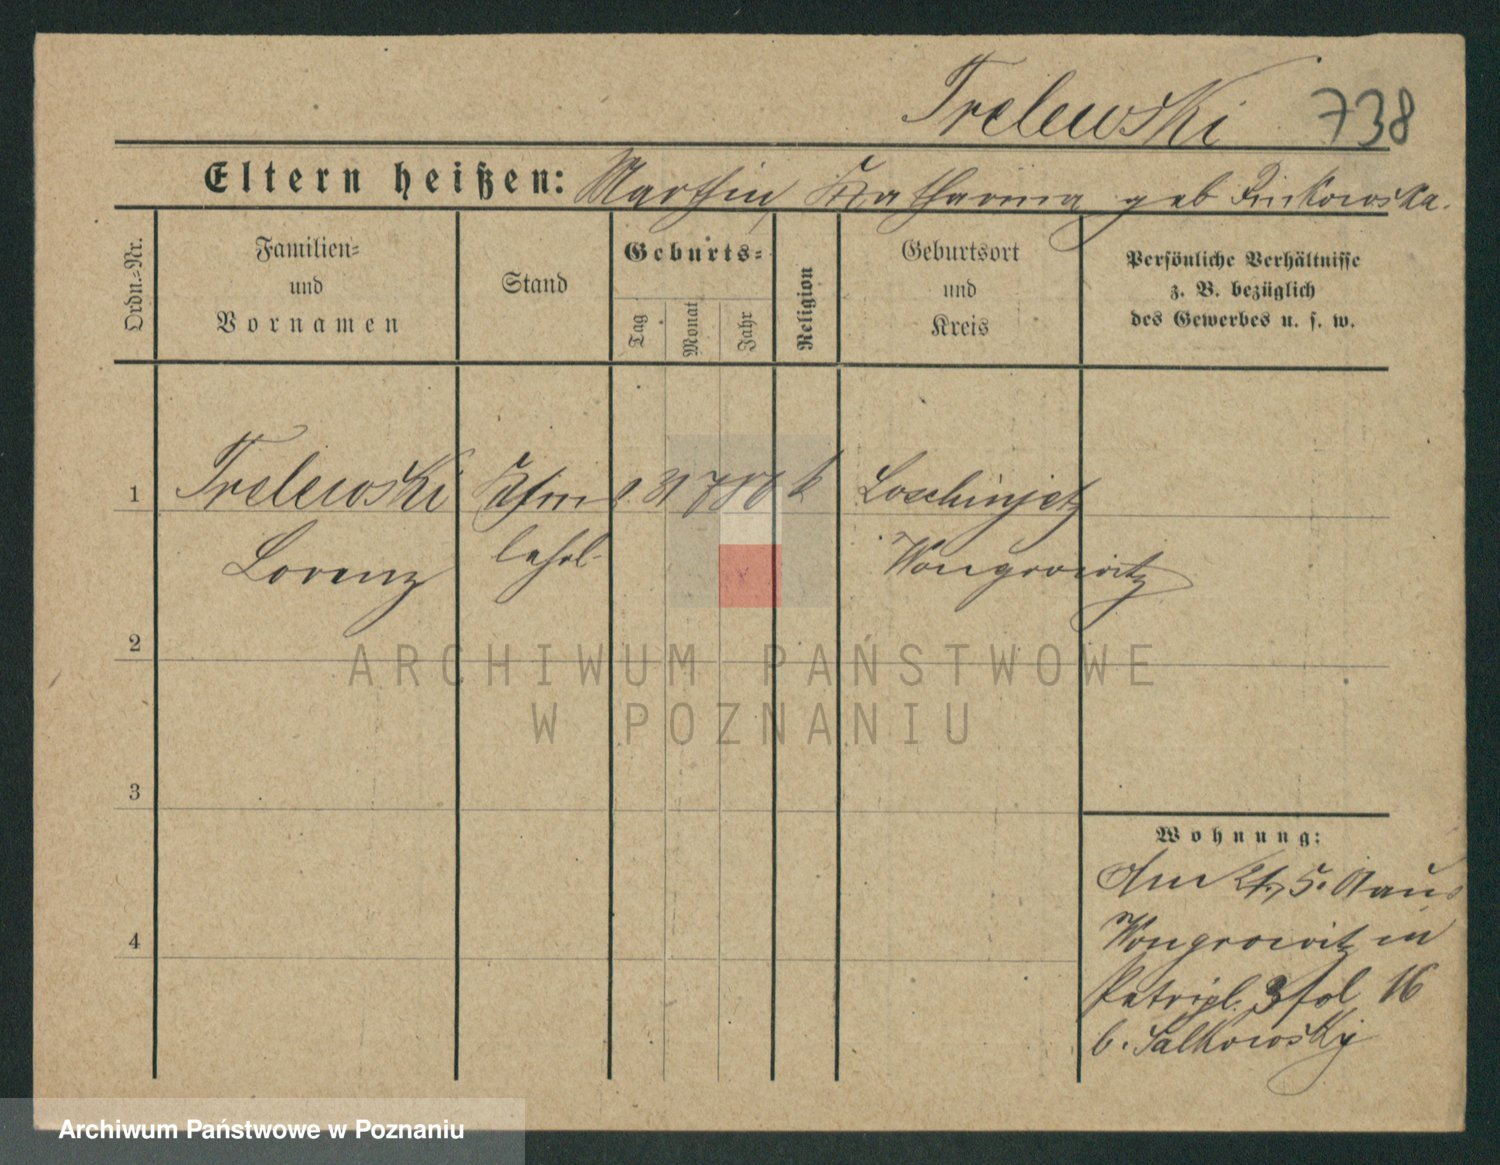 Trelewski 738
Eltern heißen: Martin, Katharina geb Finkowska.
Ordn.=Nr.
Familien=
und
Vornamen
Stand
Geburts=
Tag
Monat
Jahr
Religion
Geburtsort
und
Kreis
Persönliche Verhältnisse
z. B. bezüglich
des Gewerbes u. s. w.
1 Trelewski 31 7 k
Wongrowitz
Lorenz lehrl.
2
ARCHIWUM PAŃSTWOWE
W POZNANIU
3
Wohnung:
4
Wongrowitz in
Petripl. 3 fol 16
b. Salkowsky
Archiwum Państwowe w Poznaniu